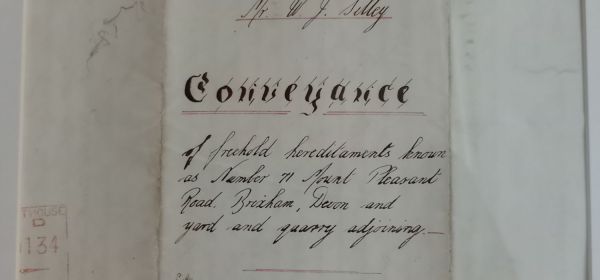 Mr. W. J. Selley
Conveyance
of freehold hereditaments known
as Number 71 Mount Pleasant
Road, Brixham, Devon and
yard and quarry adjoining.—
HOUSE
D
134